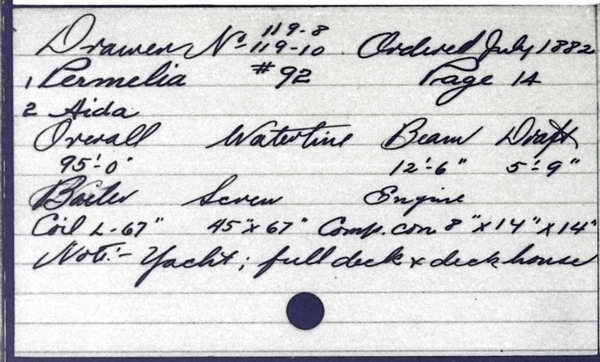 Drawer No 119-8
119-10 Ordered July 1882
1 Permelia #92 Page 14
2 Aida
Overall Waterline Beam Draft
95'-0" 12'-6" 5'-9"
Boiler Screw Engine
Coil L-67" 45"x67" Comp. con 8"x14"x14"
Note:- Yacht; full deck & deck house